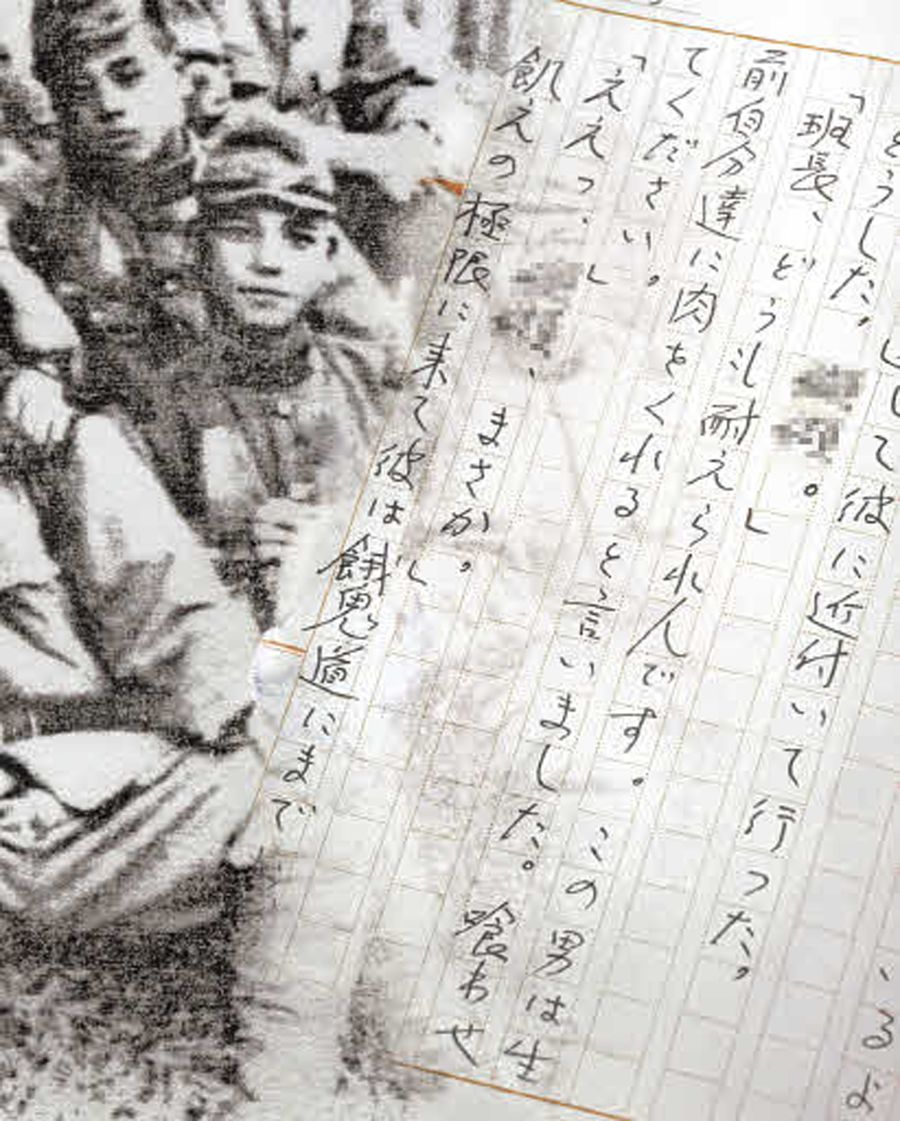 るよ
して彼に近付いて行った。
どうした。。」
「班長、どうも耐えられんです。この男は生
前自分達に肉をくれると言いました。喰わせ
てください。
「ええっ、」、まさか。」
飢えの極限に来て彼は餓鬼道にまで